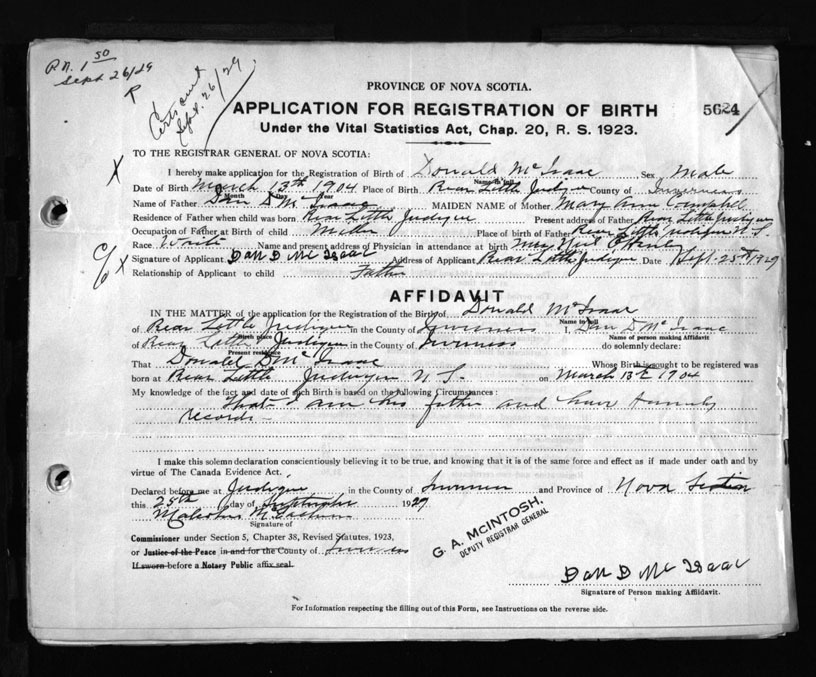 P.N. 1 50
Sept 26/29
R
Certs sent
Sept. 26/29
PROVINCE OF NOVA SCOTIA.
APPLICATION FOR REGISTRATION OF BIRTH
5624
Under the Vital Statistics Act, Chap. 20, R. S. 1923.
TO THE REGISTRAR GENERAL OF NOVA SCOTIA:
X
I hereby make application for the Registration of Birth of Donald McIsaac Sex Male
Name in full
Date of Birth March 13th 1904 Place of Birth Rear Little Judique County of Inverness
Month Day Year
Name of Father Dan D McIsaac MAIDEN NAME of Mother Mary Ann Campbell
Residence of Father when child was born Rear Little Judique Present address of Father Rear Little Judique
Occupation of Father at Birth of child Place of birth of Father Rear Little Judique N S
Race White Name and present address of Physician in attendance at birth Mrs Neil
Signature of Applicant Dan D Mc Isaac Address of Applicant Rear Little Judique Date Sept. 25th 1929
X
Relationship of Applicant to child Father
AFFIDAVIT
IN THE MATTER of the application for the Registration of the Birth of Donald McIsaac
Name in full
of Rear Little Judique in the County of Inverness I, Dan D McIsaac
Birth place
Name of person making Affidavit
of Rear Little Judique in the County of Inverness do solemnly declare:
Present residence
That Donald D McIsaac Whose Birth is sought to be registered was
born at Rear Little Judique N S. on March 13th 1904
My knowledge of the fact and date of such Birth is based on the following Circumstances:
that I am his father and have family
records
I make this solemn declaration conscientiously believing it to be true, and knowing that it is of the same force and effect as if made under oath and by
virtue of The Canada Evidence Act.
Declared before me at Judique in the County of Inverness and Province of Nova Scotia
this 25th day of September 1929
Malcolm McEachern
Signature of
Commissioner under Section 5, Chapter 38, Revised Statutes, 1923,
or Justice of the Peace in and for the County of Inverness
If sworn before a Notary Public affix seal.
G. A. McINTOSH.
DEPUTY REGISTRAR GENERAL
Dan D Mc Isaac
Signature of Person making Affidavit.
For Information respecting the filling out of this Form, see Instructions on the reverse side.